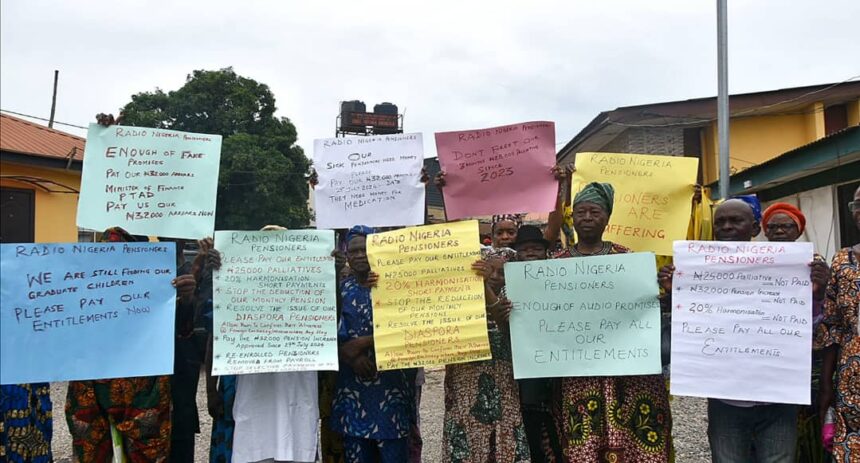 RADIO NIGERIA PENSIONERS
ENOUGH OF FAKE
PROMISES
PAY OUR ₦32,000 ARREARS
MINISTER OF FINANCE
PTAD
PAY US OUR
₦32000 ARREARS NOW
RADIO NIGERIA PENSIONERS
OUR
SICK PENSIONERS NEED MONEY
PLEASE
PAY OUR ₦32,000
DATE
MEDICATION
RADIO NIGERIA PENSIONERS
DONT FORGET OUR
PALLIATIVE
SINCE
2023
RADIO NIGERIA PENSIONERS
PLEASE
PENSIONERS
ARE
SUFFERING
RADIO NIGERIA PENSIONERS
WE ARE STILL FEEDING OUR
GRADUATE CHILDREN
PLEASE PAY OUR
ENTITLEMENTS NOW
RADIO NIGERIA
PENSIONERS
PLEASE PAY OUR
₦25000 PALLIATIVES
20% HARMONISATION
SHORT PAYMENTS
STOP THE DEDUCTION OF
OUR MONTHLY PENSION
RESOLVE THE ISSUE OF OUR
DIASPORA PENSIONERS
PAY THE ₦32,000 PENSION INCREASE
APPROVED SINCE 29TH JULY 2024
RE-ENROLLED PENSIONERS
REMOVED FROM PAYROLL
STOP SELECTIVE PAYMENTS
RADIO NIGERIA
PENSIONERS
PLEASE PAY OUR ENTITLEMENT
₦25000 PALLIATIVES
20% HARMONISATION
STOP THE REDUCTION
OF OUR MONTHLY
PENSIONS
RESOLVE THE ISSUE OF OUR
DIASPORA
PENSIONERS
PAY THE ₦32,000 PENSION INCREASE
RADIO NIGERIA
PENSIONERS
ENOUGH OF AUDIO PROMISES
PLEASE PAY ALL
OUR
ENTITLEMENTS
RADIO NIGERIA PENSIONERS
₦25000 Palliative — Not PAID
₦32000 Pension Increase — Not PAID
20% Harmonisation — Not PAID
PLEASE PAY ALL OUR
ENTITLEMENTS